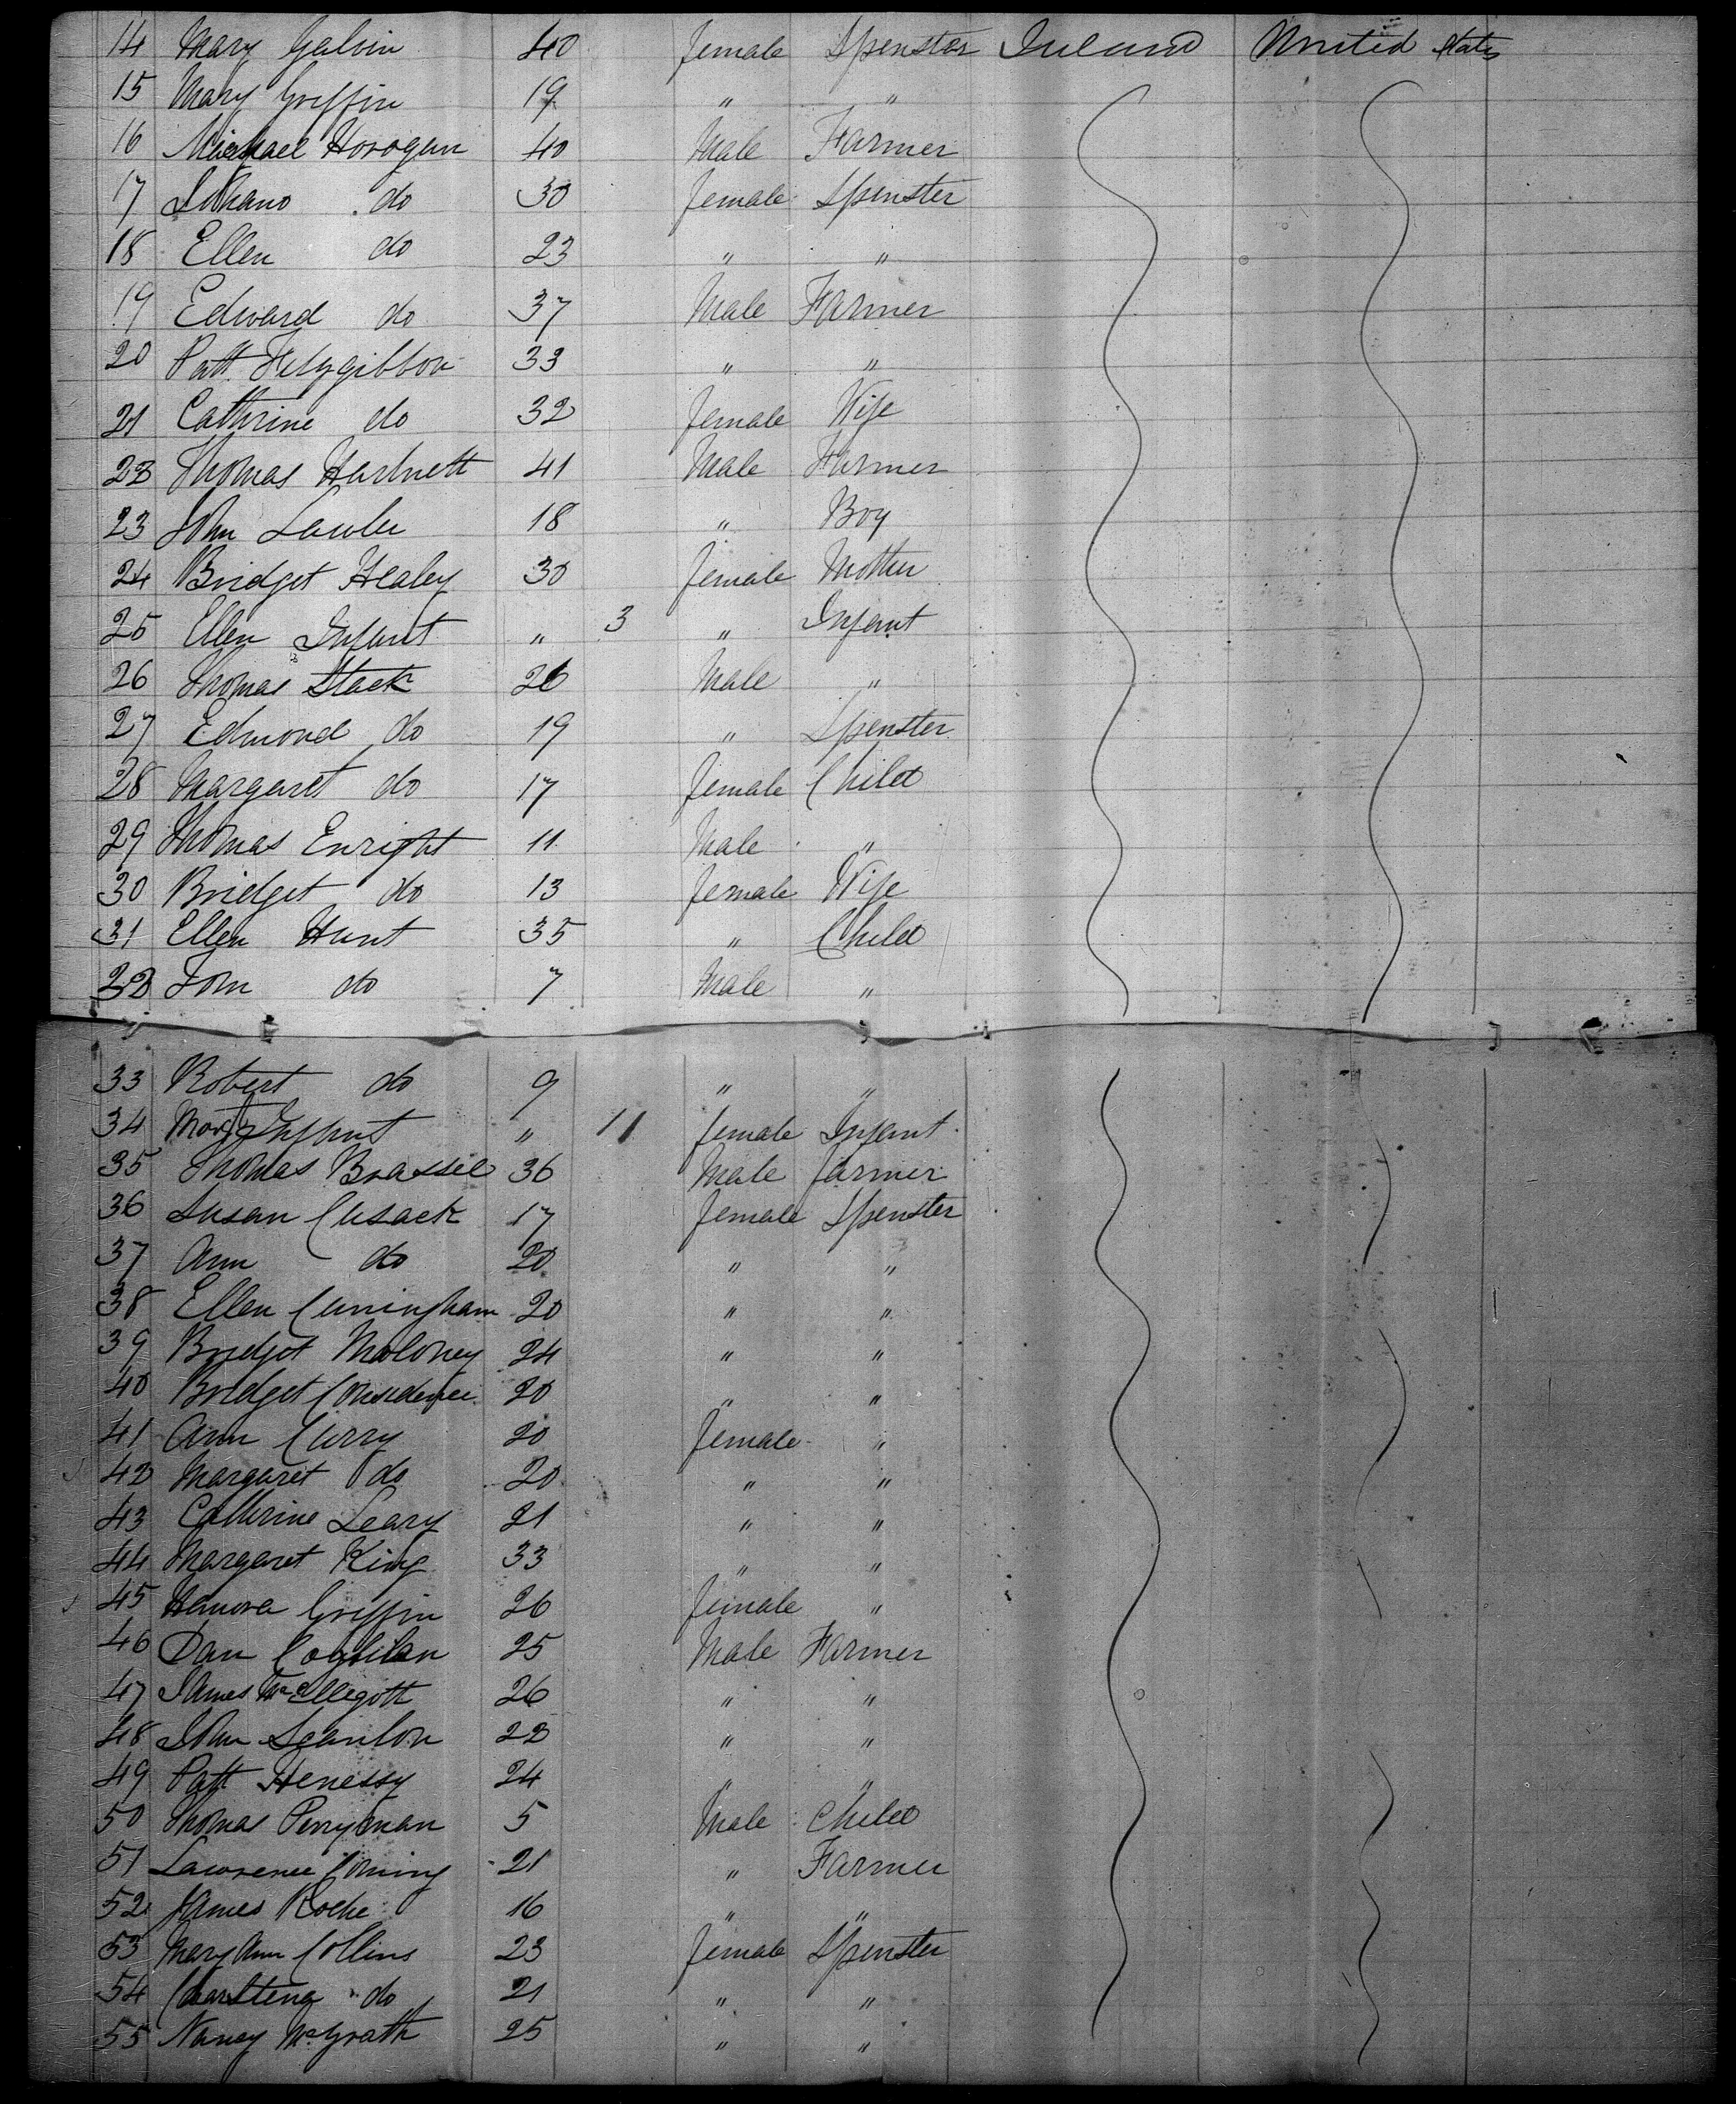 14 Mary Galvin 40 female Spenster Ireland United States
15 Mary Griffin 19 " "
16 Michael Horogan 40 Male Farmer
17 Johano do 30 female Spenster
18 Ellen do 23 " "
19 Edward do 37 Male Farmer
20 Patt Fitzgibbon 33 " "
21 Cathrine do 32 female Wife
22 Thomas Hartnett 41 Male Farmer
23 John Lawler 18 " Boy
24 Bridget Healey 30 female Mother
25 Ellen Infant " 3 " Infant
26 Thomas Stack 26 Male "
27 Edmond do 19 " Spenster
28 Margaret do 17 female Child
29 Thomas Enright 11 Male "
30 Bridget do 13 female Wife
31 Ellen Hunt 35 " Child
32 Tom do 7 Male "
33 Robert do 9 " "
34 Mary Infant " 11 female Infant
35 Thomas Brassil 36 Male farmer
36 Susan Cusack 17 female Spenster
37 Ann do 20 " "
38 Ellen Cuningham 20 " "
39 Bridget Moloney 24 " "
40 Bridget 20 " "
41 Ann Curry 20 female "
42 Margaret do 20 " "
43 Cathrine Leary 21 " "
44 Margaret King 33 " "
45 Hanora Griffin 26 female "
46 Dan Coghlan 25 Male Farmer
47 James McElligott 26 " "
48 John Scanlon 22 " "
49 Patt Henessy 24 " "
50 Thomas Perryman 5 Male Child
51 Lawrence 21 " Farmer
52 James Roche 16 " "
53 Mary Ann Collins 23 female Spenster
54 do 21 " "
55 Nancy McGrath 25 " "